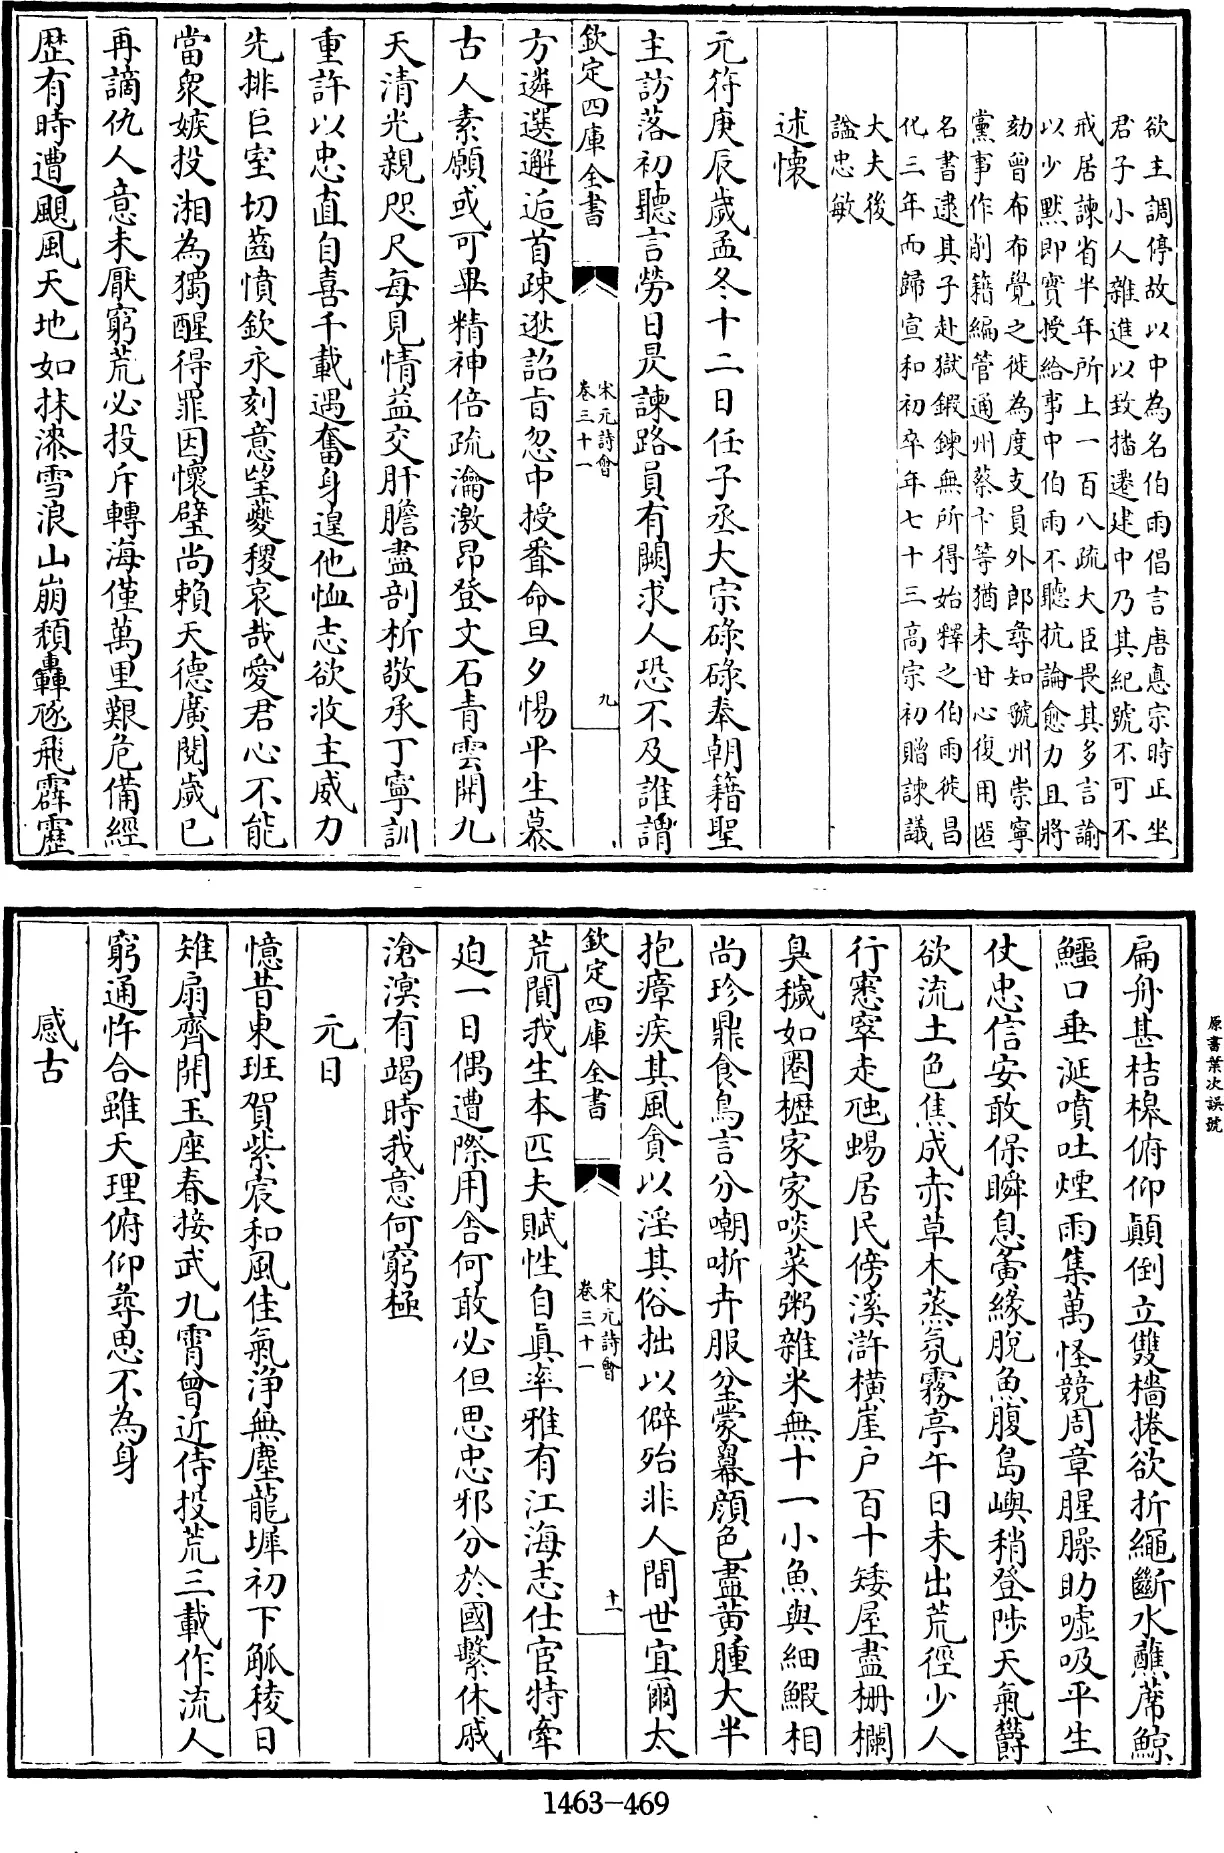 欲主調停故以中為名伯雨倡言唐德宗時正坐
君子小人雜進以致播遷建中乃其紀號不可不
戒居諫省半年所上一百八疏大臣畏其多言諭
以少黙即實授給事中伯雨不聽抗論愈力且將
劾曾布布覺之徙為度支員外郎尋知虢州崇寧
黨事作削籍編管通州蔡卞等猶未甘心復用匿
名書逮其子赴獄鍜鍊無所得始釋之伯雨徙昌
化三年而歸宣和初卒年七十三高宗初贈諫議
大夫後
諡忠敏
述懷
元符庚辰歲孟冬十二日任子丞大宗碌碌奉朝籍聖
主訪落初聽言勞日昃諫路員有闕求人恐不及誰謂
欽定四庫全書
宋元詩會
卷三十一
九
方遴選邂逅首疎逖詔旨忽中授聳命旦夕惕平生慕
古人素願或可畢精神倍疏瀹激昂登文石青雲開九
天清光親咫尺每見情益交肝膽盡剖析敬承丁寧訓
重許以忠直自喜千載遇奮身遑他恤志欲收主威力
先排巨室切齒憤欽永刻意望夔稷哀哉愛君心不能
當衆嫉投湘為獨醒得罪因懷璧尚賴天德廣閱歲已
再謫仇人意未厭窮荒必投斥轉海僅萬里艱危備經
歴有時遭颶風天地如抹漆雪浪山崩頽轟豗飛霹靂
原書葉次誤號
扁舟甚桔槔俯仰顛倒立雙檣捲欲折繩斷水蘸蓆鯨
鱷口垂涎噴吐煙雨集萬怪競周章腥臊助噓吸平生
仗忠信安敢保瞬息夤緣脫魚腹島嶼稍登陟天氣鬱
欲流土色焦成赤草木蒸氛霧亭午日未出荒徑少人
行窓穽走虺蜴居民傍溪滸橫崖户百十矮屋盡栅欄
臭穢如圈櫪家家啖菜粥雜米無十一小魚與細鰕相
尚珍鼎食鳥言分嘲哳卉服坌蒙羃顔色盡黄腫大半
抱瘴疾其風貪以淫其俗拙以僻殆非人間世宜爾太
欽定四庫全書
宋元詩會
卷三十一
十一
荒間我生本匹夫賦性自眞率雅有江海志仕宦特牽
廹一日偶遭際用舍何敢必但思忠邪分於國繫休戚
滄溟有竭時我意何窮極
元日
憶昔東班賀紫宸和風佳氣浄無塵龍墀初下觚稜日
雉扇齊開玉座春接武九霄曾近侍投荒三載作流人
窮通忤合雖天理俯仰尋思不為身
感古
1463-469